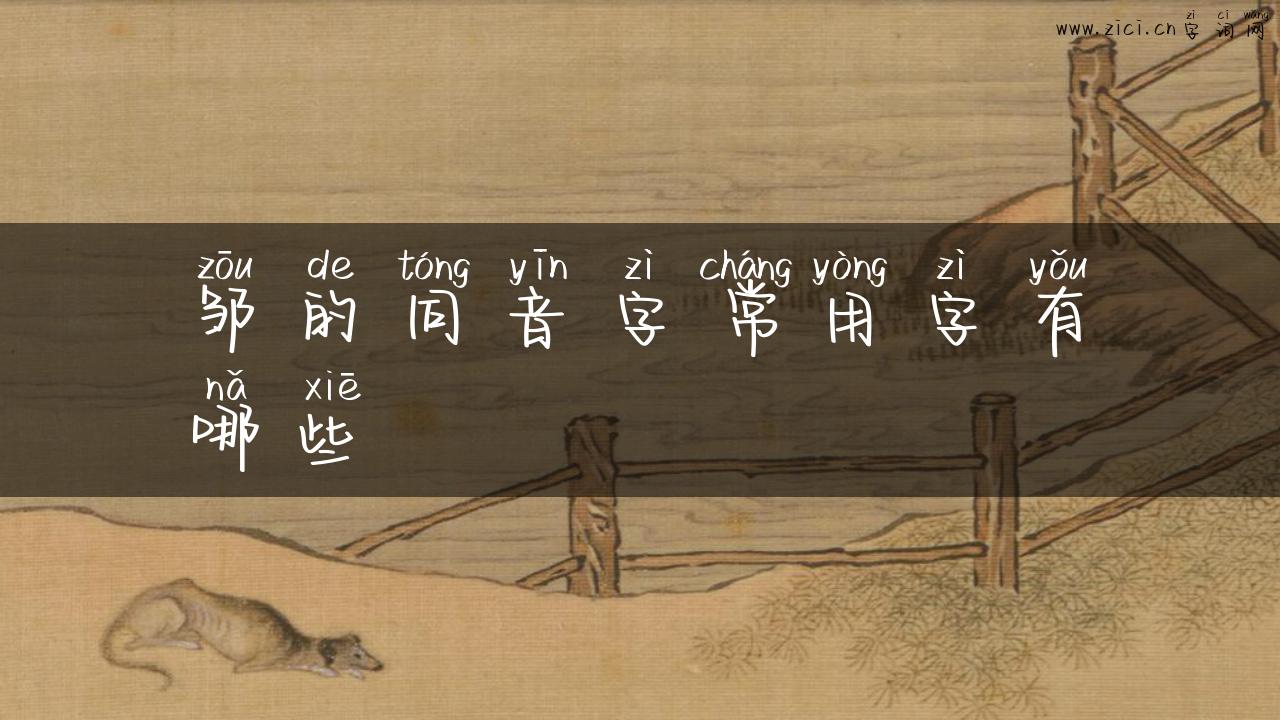 zì cí wǎng
www.zici.cn 字词网
zōu de tóng yīn zì cháng yòng zì yǒu
邹的同音字常用字有
nǎ xiē
哪些